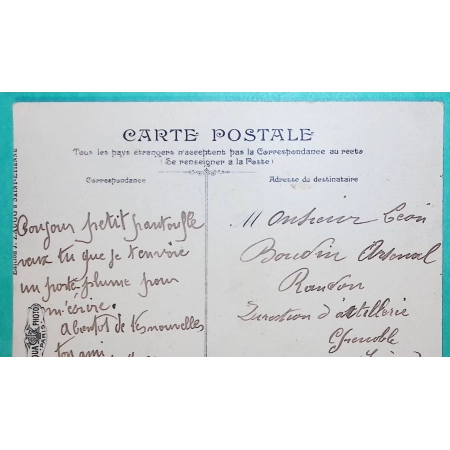 CARTE POSTALE
Tous les pays étrangers n'acceptent pas la Correspondance au recto
(Se renseigner à la Poste)
Correspondance
Adresse du destinataire
Bonjour petit pantoufle
veux tu que je t'envoie
un porte-plume pour
m'écrire.
A bientot de tes nouvelles
ton ami
Monsieur Léon
Boudin Arsenal
Randon
Direction d'artillerie
Grenoble
PHOTO
PARIS